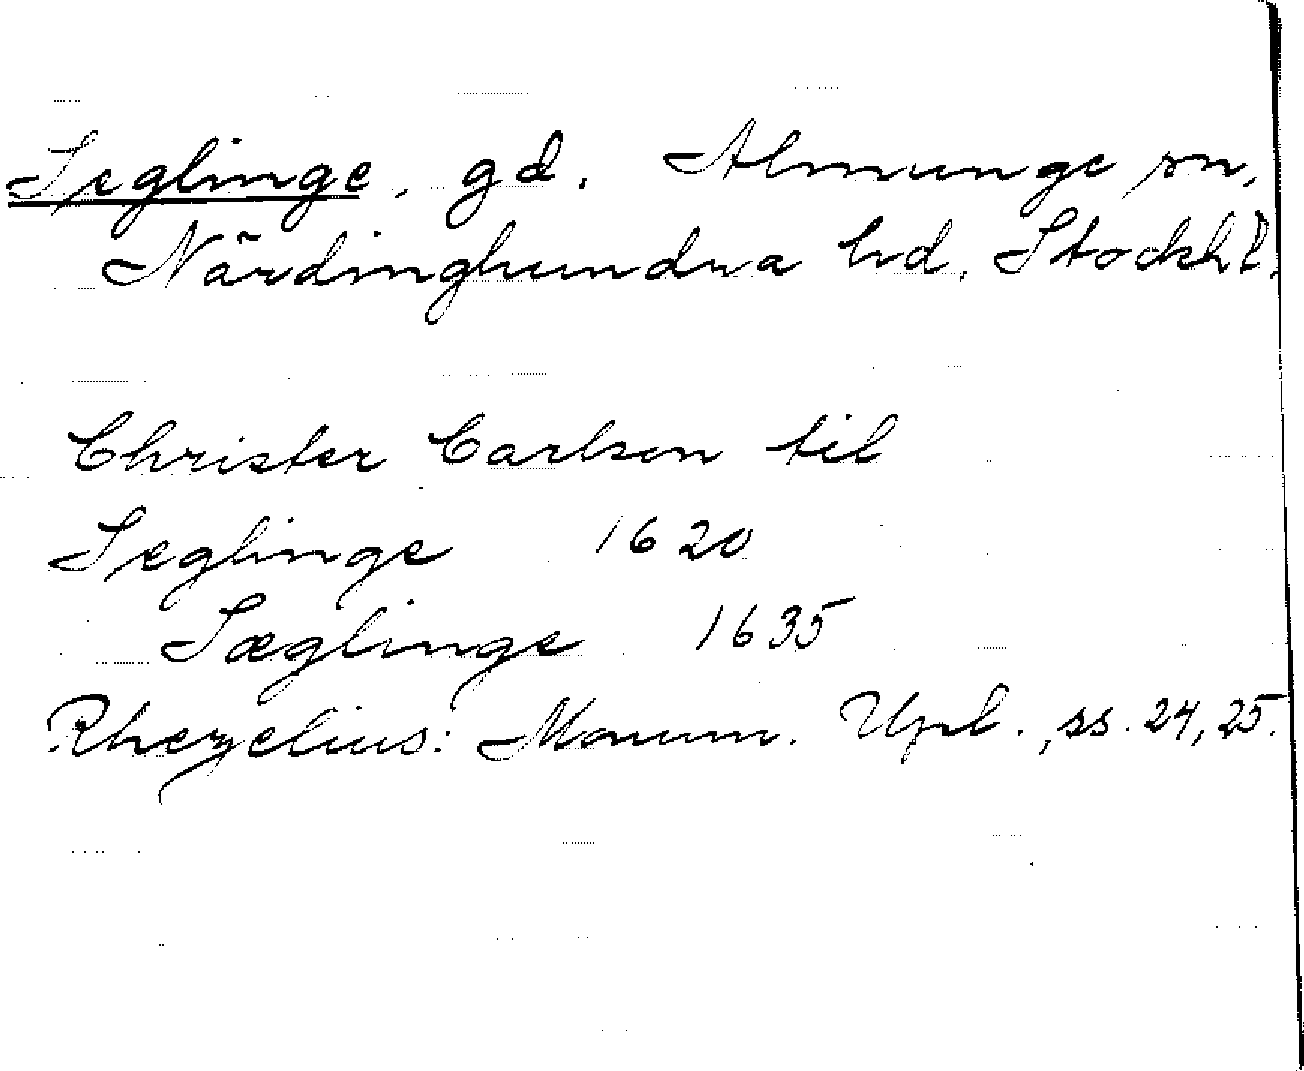 Seglinge, gd. Almunge sn,
Närdinghundra hd, Stockh. l.
Christer Carlson til
Seglinge 1620
Sæglinge 1635
Rhezelius: Monum. Upl., ss. 24, 25.